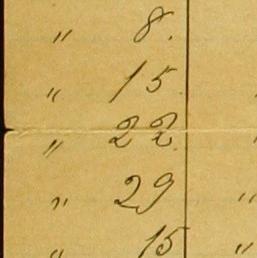 " 8.
" 15
" 22
" 29 "
" 15 "